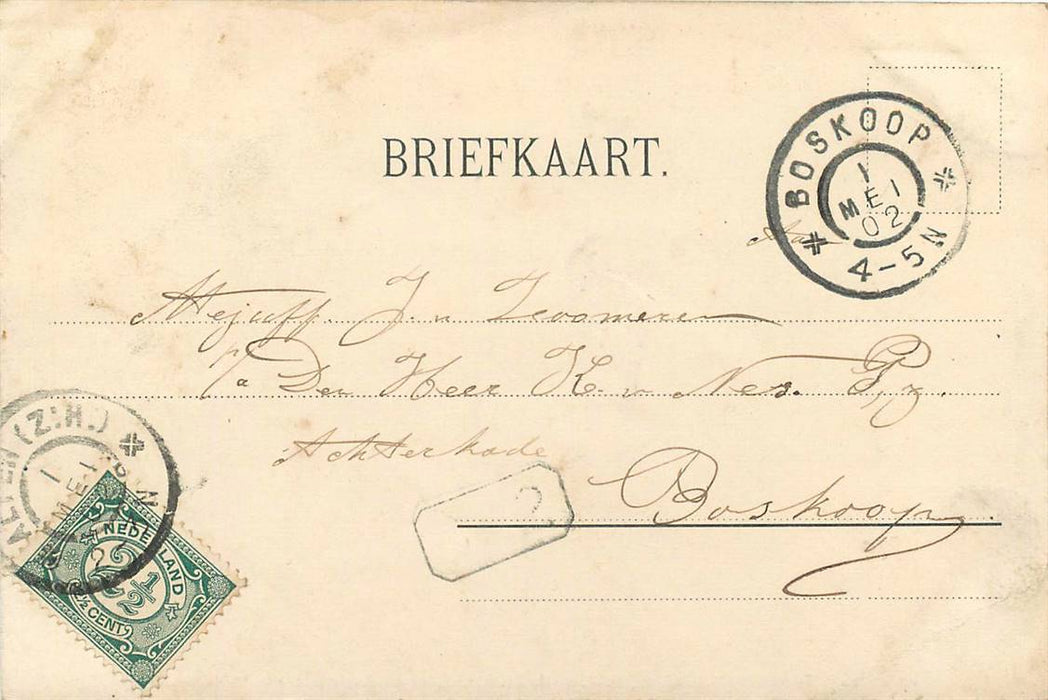 BRIEFKAART.
BOSKOOP
1
MEI
02
4-5N
Aan
Mejuff. J. v
p/a Den Heer K. v Nes. Pz.
Achterkade
Boskoop
(Z:H.)
1
MEI
NEDERLAND
2½
2½ CENT